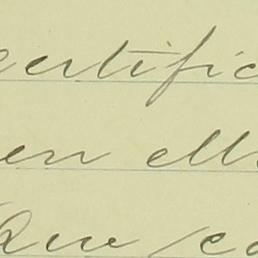 certific
en ella
Que ca